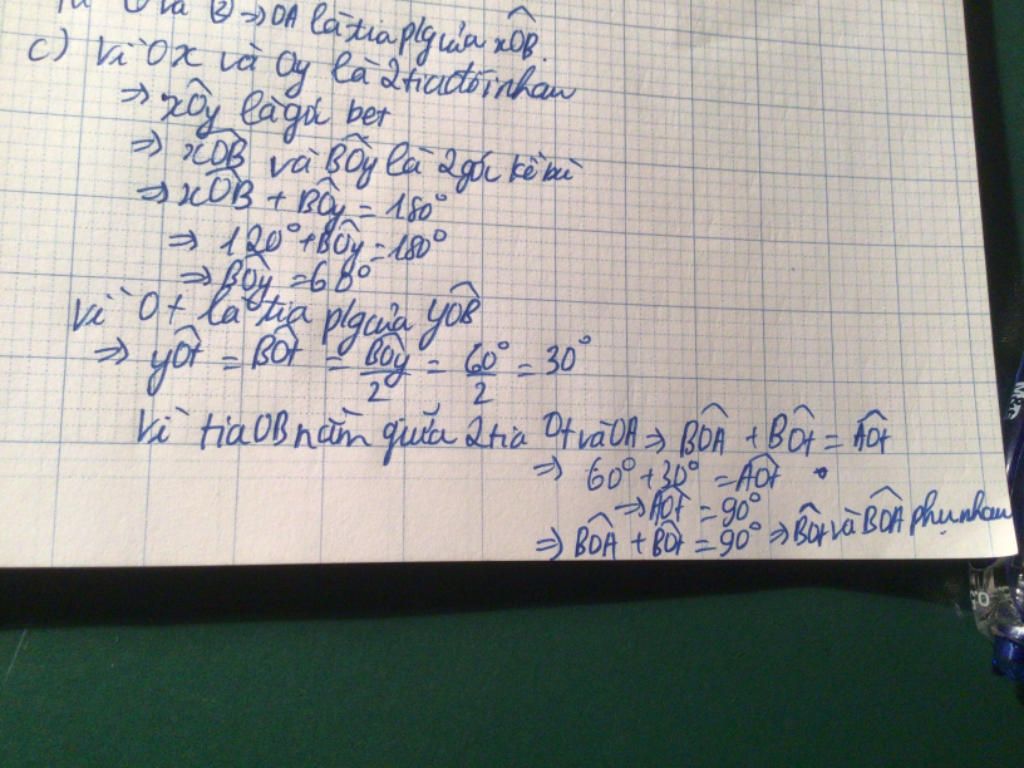 (1) và (2) ⇒ OA là tia p/g của xÔB
c) Vì Ox và Oy là 2 tia đối nhau
⇒ xÔy là góc bẹt
⇒ xÔB và BÔy là 2 góc kề bù
⇒ xÔB + BÔy = 180°
⇒ 120° + BÔy = 180°
⇒ BÔy = 60°
Vì Ot là tia p/g của yÔB
⇒ yÔt = BÔt = BÔy/2 = 60°/2 = 30°
Vì tia OB nằm giữa 2 tia Ot và OA ⇒ BÔA + BÔt = AÔt
⇒ 60° + 30° = AÔt
⇒ AÔt = 90°
⇒ BÔA + BÔt = 90° ⇒ BÔt và BÔA phụ nhau